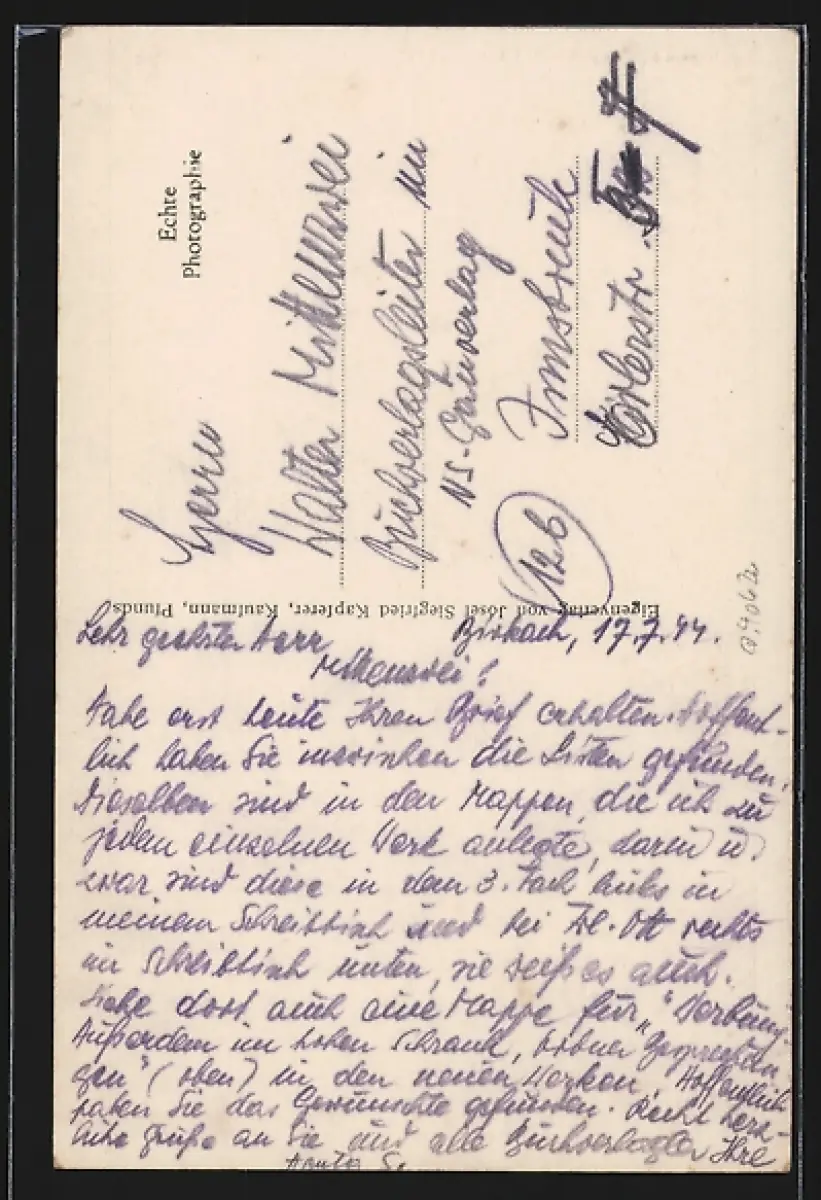 Echte
Photographie
Herrn
Walter Mittenwei
Buchverlagsleiter im
NS-Gauverlag
(12b) Innsbruck
Erlerstr.
Eigenverlag von Josef Siegfried Kapferer, Kaufmann, Pfunds.
Birkach, 17.7.44.
Sehr geehrter Herr
Mittenwei!
Habe erst heute Ihren Brief erhalten. Hoffent-
lich haben Sie inzwischen die Listen gefunden.
Dieselben sind in den Mappen, die ich zu
jedem einzelnen Werk anlegte, darin u.
zwar sind diese in dem 3. Fach links in
meinem Schreibtisch und bei Frl. Ott rechts
im Schreibtisch unten, sie weiß es auch.
Siehe dort auch eine Mappe für "Werbung"
Außerdem im hohen Schrank,
gen" (oben) in den neuen Werken. Hoffentlich
haben Sie das Gewünschte gefunden. Recht herz-
liche Grüße an Sie und alle Buchverlagler Ihre